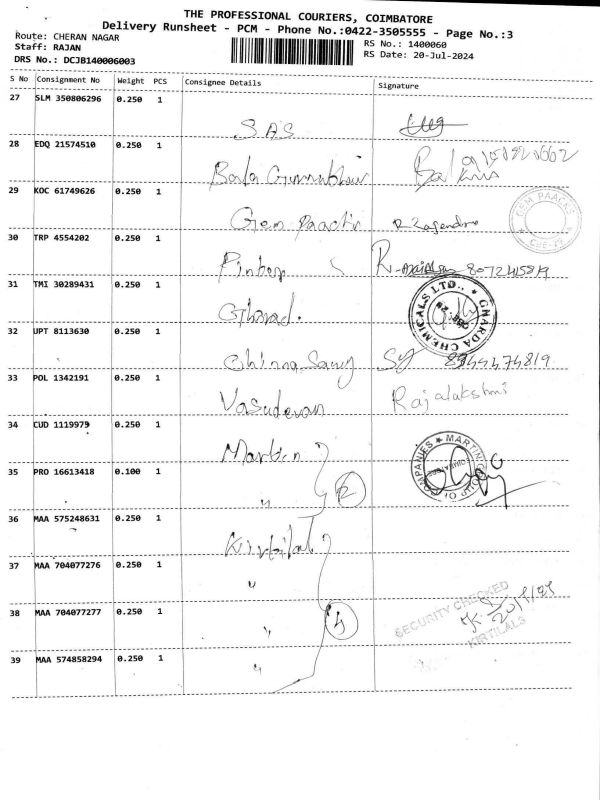 THE PROFESSIONAL COURIERS, COIMBATORE
Delivery Runsheet - PCM - Phone No.:0422-3505555 - Page No.:3
Route: CHERAN NAGAR
RS No.: 1400060
Staff: RAJAN
RS Date: 20-Jul-2024
DRS No.: DCJB140006003
S No Consignment No Weight PCS Consignee Details Signature
27 SLM 350806296 0.250 1
SAS
28 EDQ 21574510 0.250 1
Bala
29 KOC 61749626 0.250 1
Gem Paactis R Rajendra
GEM PAACKS
CBE-29
30 TRP 4554202 0.250 1
31 TMI 30289431 0.250 1
GHARDA CHEMICALS LTD.,
32 UPT 8113630 0.250 1
Chinna Samy Sy
33 POL 1342191 0.250 1
Vasudevan Rajalakshmi
34 CUD 1119979 0.250 1
Martin
MARTIN GROUP OF COMPANIES
35 PRO 16613418 0.100 1
" 2
36 MAA 575248631 0.250 1
Kirtilal
37 MAA 704077276 0.250 1
"
SECURITY CHECKED
KIRTILALS
38 MAA 704077277 0.250 1
" 4
39 MAA 574858294 0.250 1
"